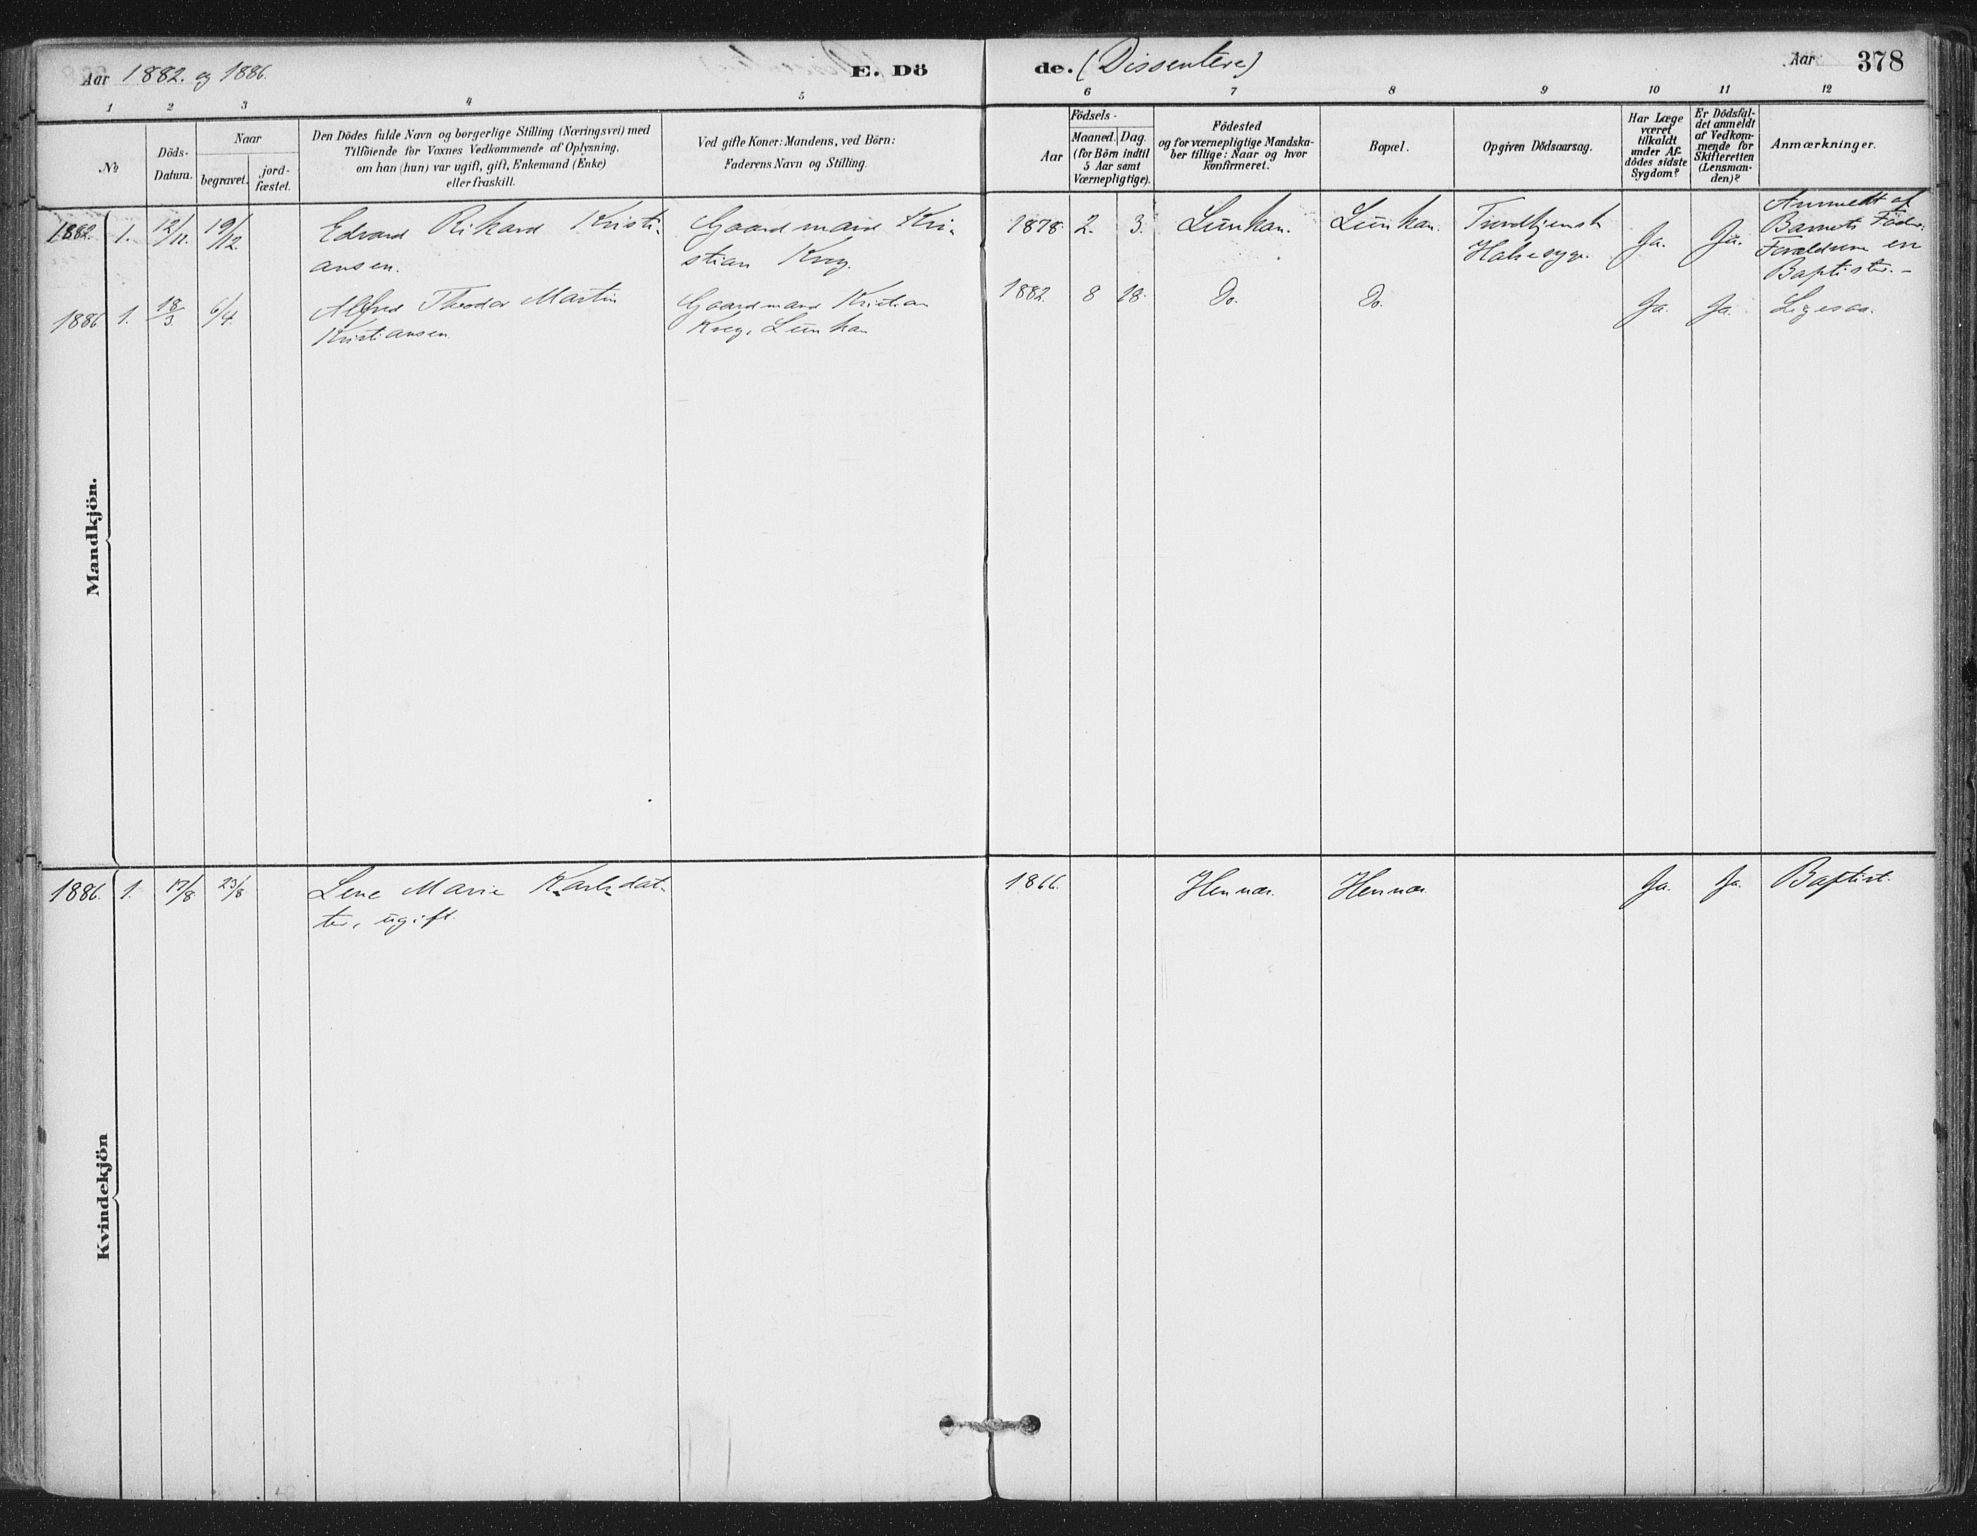 Aar 1882. og 1886.
E. Dö de. (Dissentere)
Aar 378
1 2 3 4 5 6 7 8 9 10 11 12
№
Döds-
Datum.
Naar
begravet.
jord-
fæstet.
Den Dödes fulde Navn og borgerlige Stilling (Næringsvei) med
Tilföiende for Voxnes Vedkommende af Oplysning,
om han (hun) var ugift, gift, Enkemand (Enke)
eller fraskilt.
Ved gifte Koner: Mandens, ved Börn:
Faderens Navn og Stilling.
Födsels-
Aar
Maaned. Dag.
(for Börn indtil
5 Aar samt
Værnepligtige).
Födested
og for værnepligtige Mandska-
ber tillige: Naar og hvor
konfirmeret.
Bopæl.
Opgiven Dödsaarsag.
Har Læge
været
tilkaldt
under Af-
dödes sidste
Sygdom?
Er Dödsfal-
det anmeldt
af Vedkom-
mende for
Skifteretten
(Lensman-
den)?
Anmærkninger.
Mandkjön.
1882. 1. 12/11. 19/12. Edvard Rikard Kristi-
ansen.
Gaardmand Kri-
stian Kreg.
1878. 2. 3. Lunkan. Lunkan.
Halsesyge.
Ja. Ja.
Anmeldt af
Barnets Fader.
Forældrene er
Baptister.-
1886 1. 18/3. 6/4. Alfred Theodor Martin
Kristiansen.
Gaardmand Kristian
Kreg, Lunkan
1882. 8 18. Do. Do. Ja. Ja. Ligesaa.
Kvindekjön
1886. 1. 17/8 23/8 Lene Marie Karlsdat-
ter, ugift.
1866. Hennæs. Hennæs. Ja. Ja. Baptist.